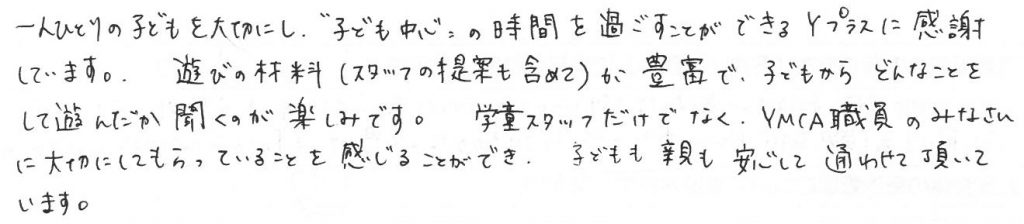 一人ひとりの子どもを大切にし、"子ども中心"の時間を過ごすことができるYプラスに感謝
しています。. 遊びの材料(スタッフの提案も含めて)が豊富で、子どもから どんなことを
して遊んだか聞くのが楽しみです。 学童スタッフだけでなく、YMCA職員のみなさん
に大切にしてもらっていることを感じることができ、子どもも親も安心して通わせて頂いて
います。